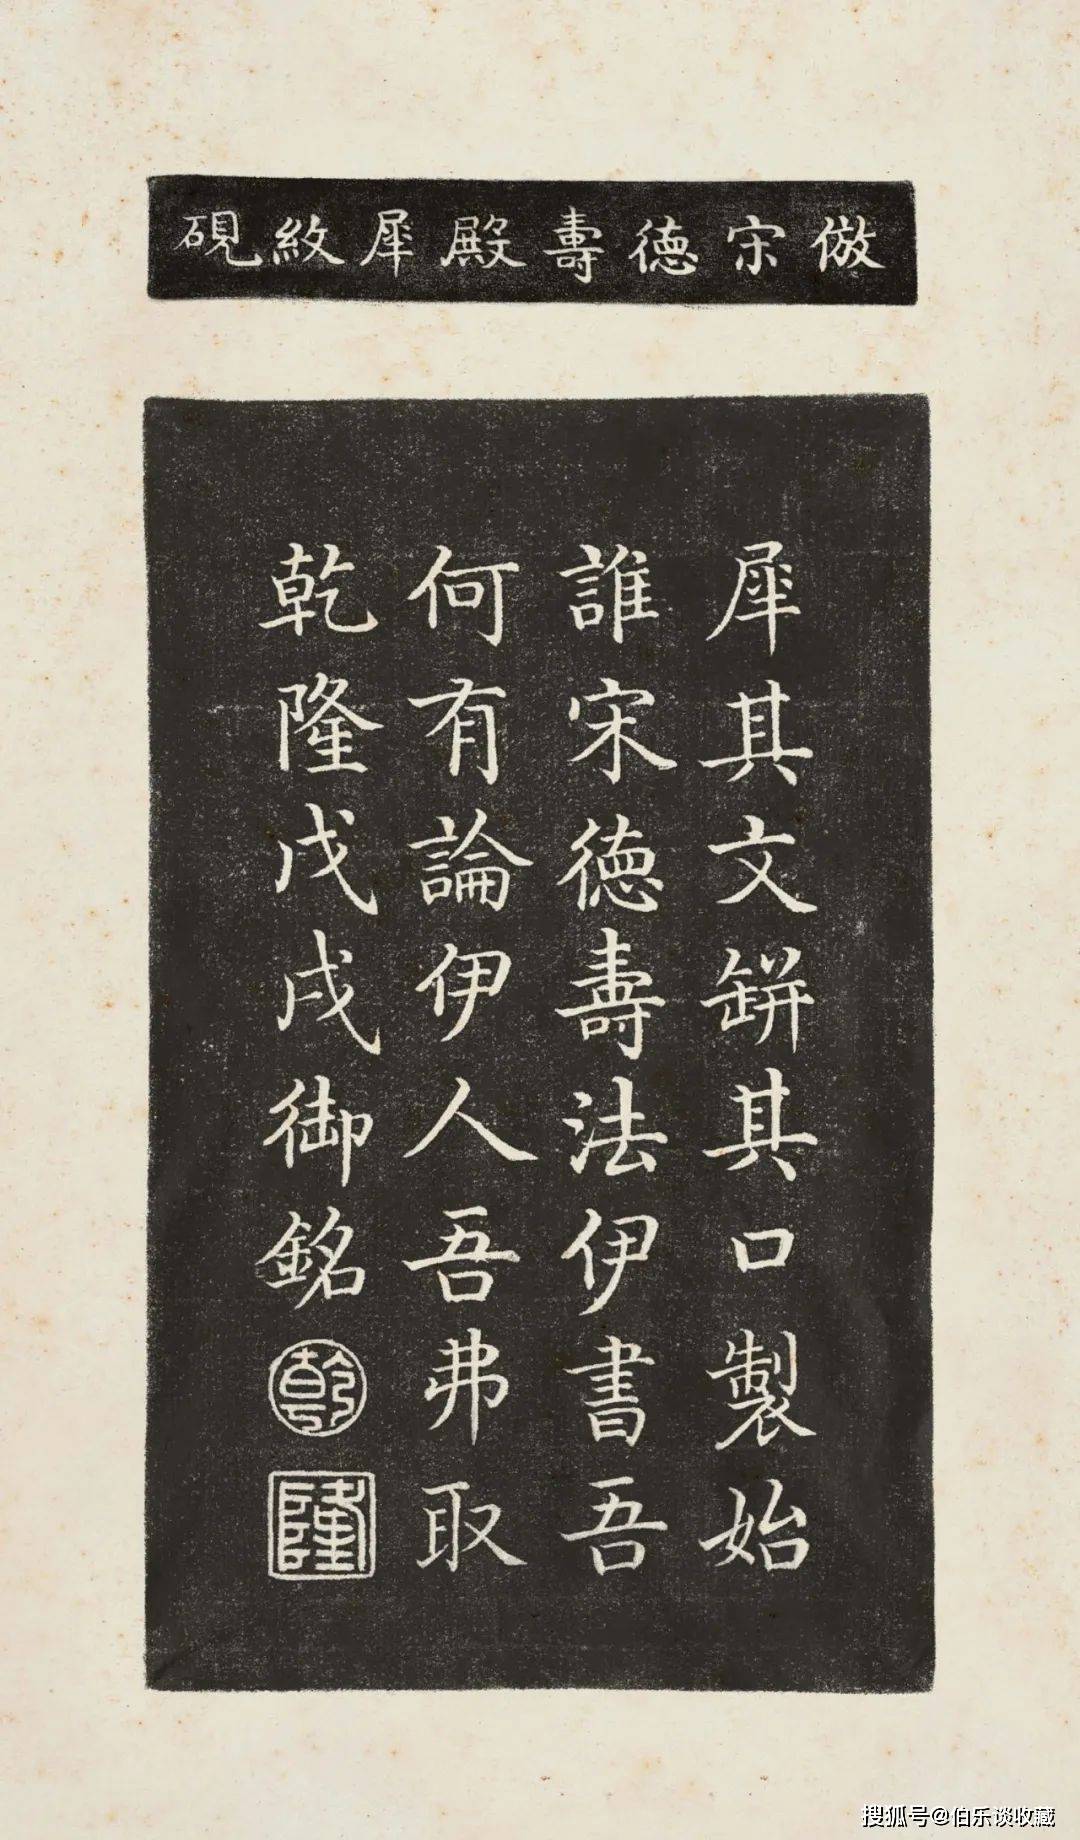 倣宋德壽殿犀紋硯
犀其文缾其口製始
誰宋德壽法伊書吾
何有論伊人吾弗取
乾隆戊戌御銘
乾
隆
搜狐号@伯乐谈收藏